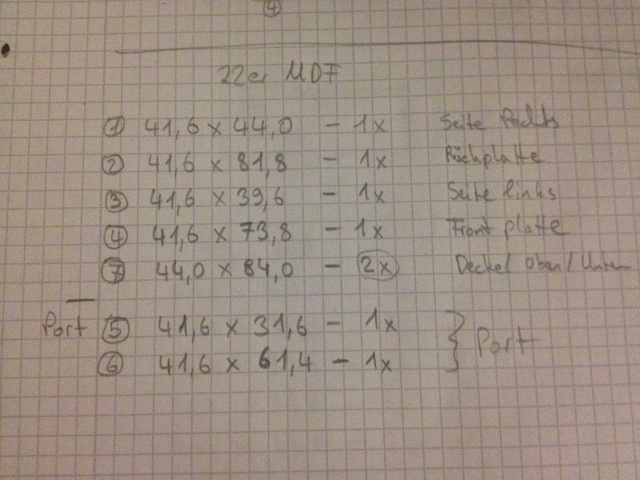 ④
22er MDF
① 41,6 x 44,0 - 1x Seite Rechts
② 41,6 x 81,8 - 1x Rückplatte
③ 41,6 x 39,6 - 1x Seite links
④ 41,6 x 73,8 - 1x Front platte
⑦ 44,0 x 84,0 - 2x Deckel Oben/Unten
Port ⑤ 41,6 x 31,6 - 1x
⑥ 41,6 x 61,4 - 1x } Port